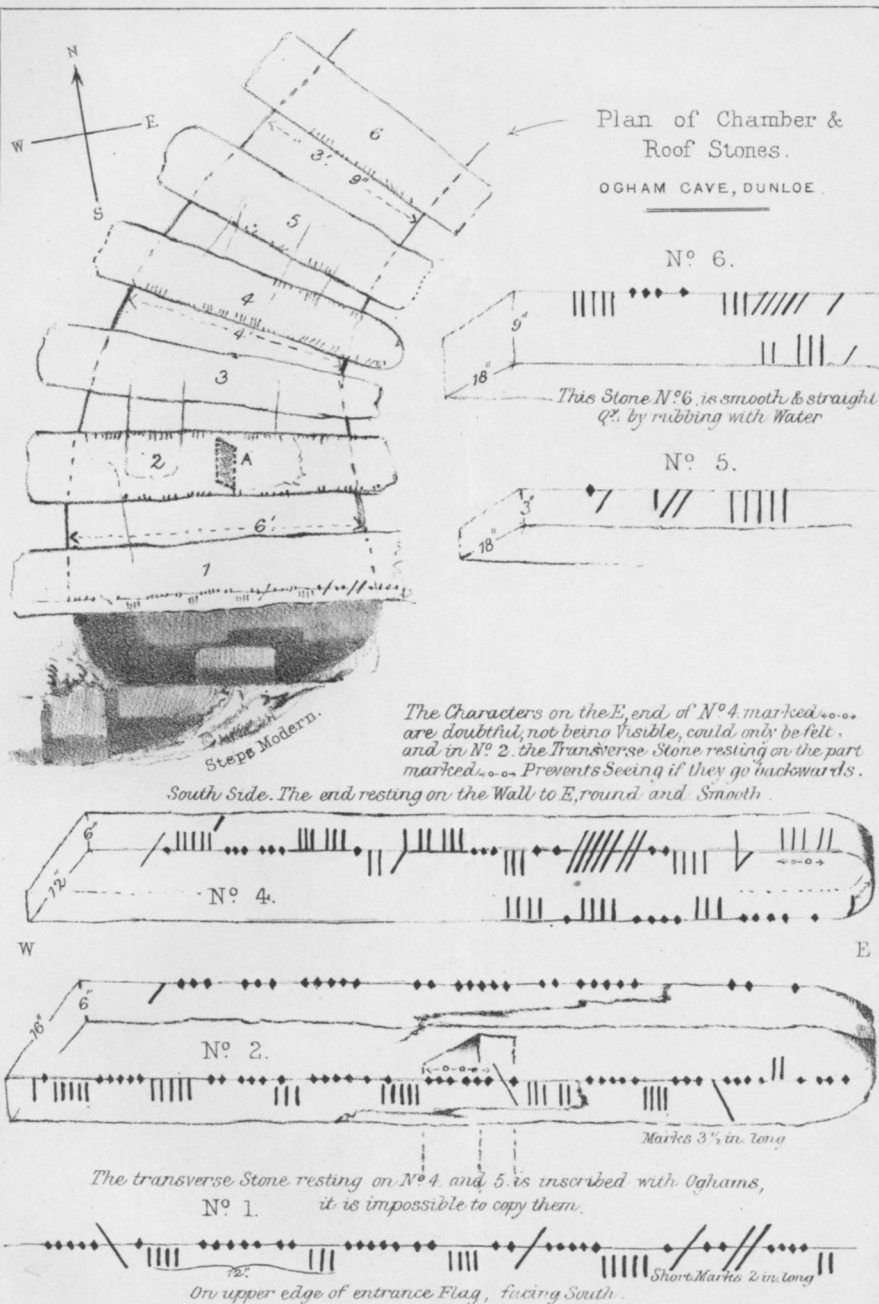 N
W
E
S
Plan of Chamber &
Roof Stones.
OGHAM CAVE, DUNLOE.
6
3'. 9"
5
4
4'.
3
2
A
6'
1
Steps Modern.
Nº 6.
9"
18"
This Stone Nº 6. is smooth & straight
Qy. by rubbing with Water
Nº 5.
3"
18"
The Characters on the E, end of Nº 4. marked
are doubtful, not being Visible, could only be felt,
and in Nº 2. the Transverse Stone resting on the part
marked Prevents Seeing if they go backwards.
South Side. The end resting on the Wall to E, round and Smooth.
6"
12"
Nº 4.
W
E
6"
16"
Nº 2.
Marks 3 ½ in. long
The transverse Stone resting on Nº 4 and 5 is inscribed with Oghams,
it is impossible to copy them.
Nº 1.
12"
Short Marks 2 in. long
On upper edge of entrance Flag, facing South.